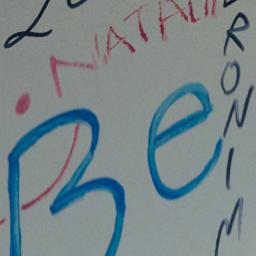 NATALI
RONIM
Be